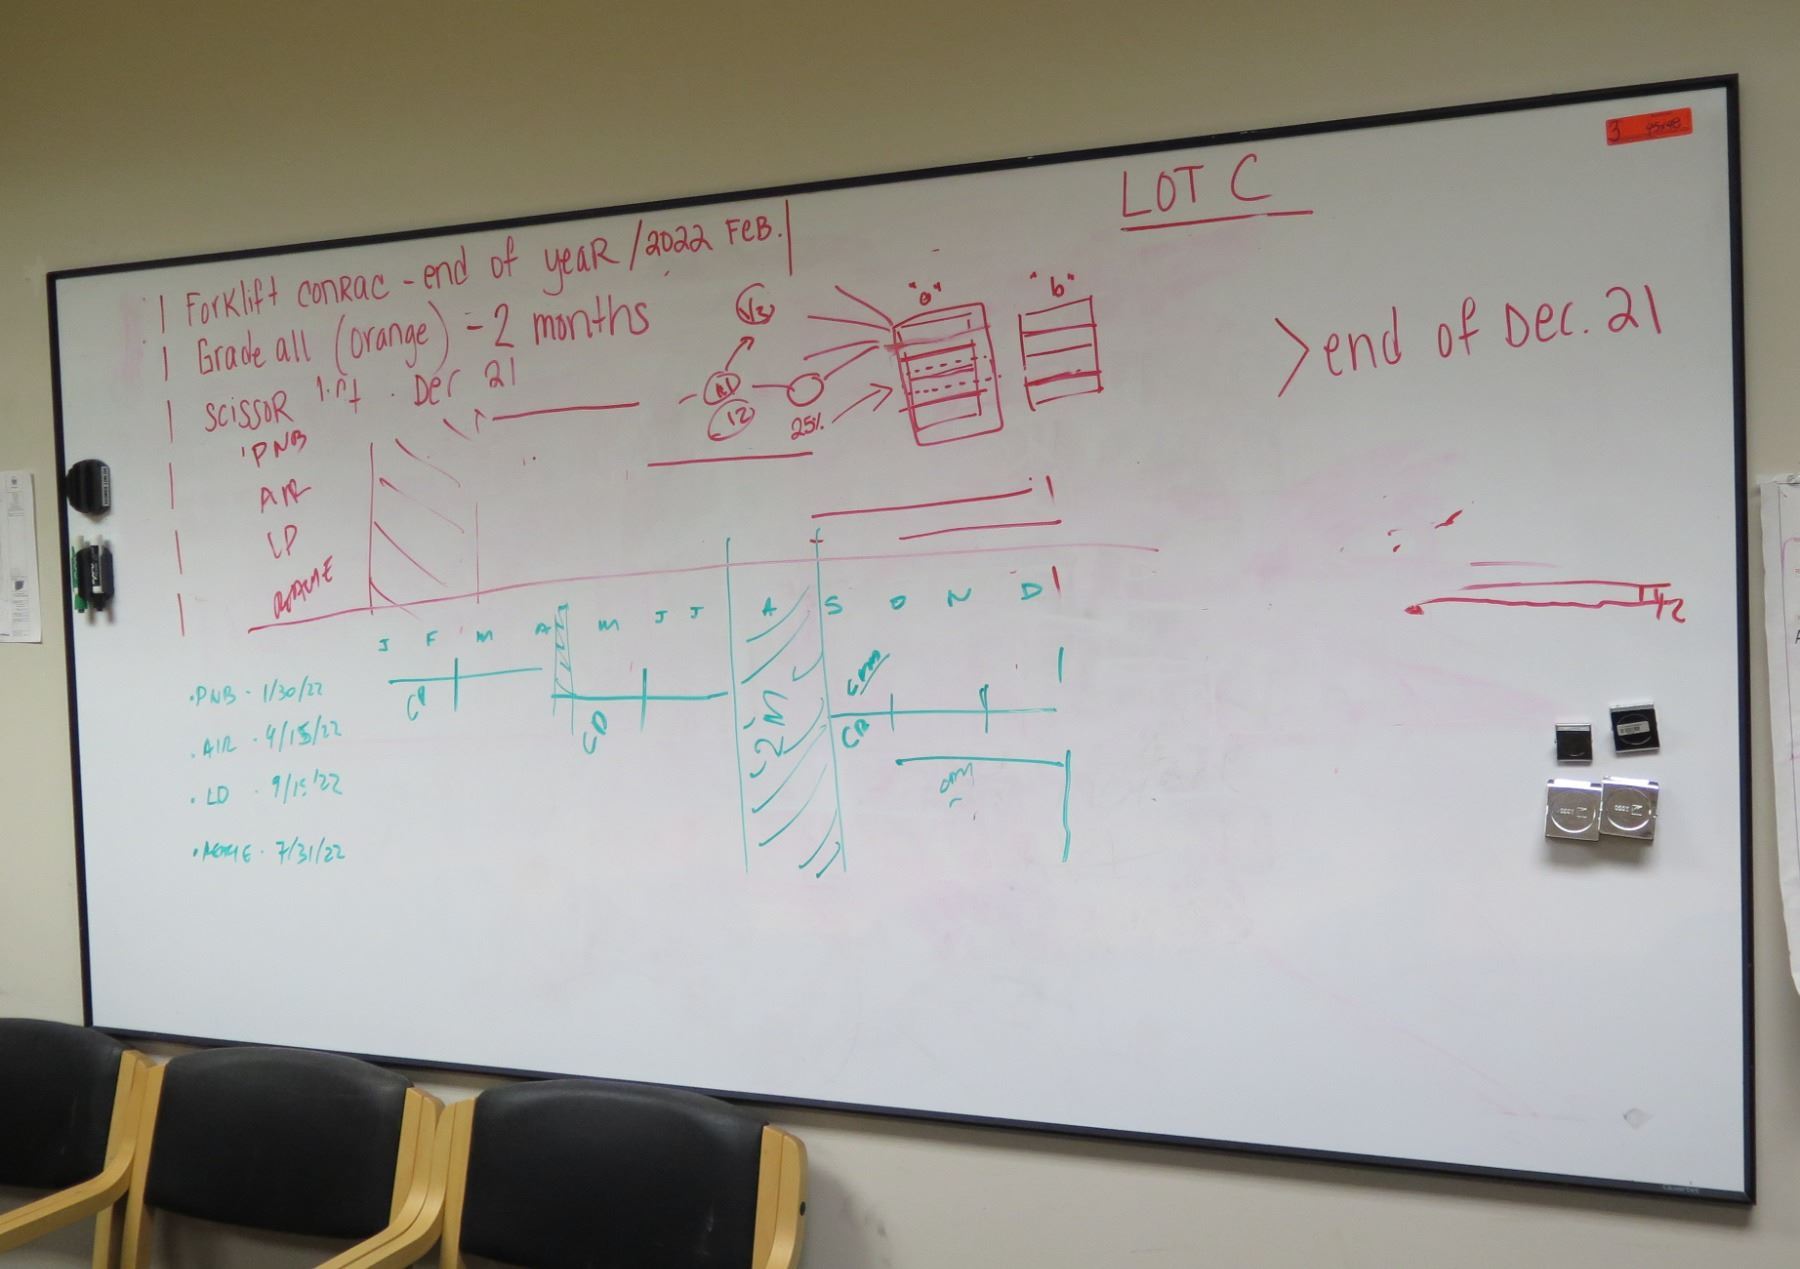 LOT C
Forklift CONRAC - end of yeaR / 2022 FeB.
Grade all (orange) - 2 months
scissoR lift . Dec 21
> end of Dec. 21
"a"
"b"
1/3
12
25%
PNB
AIR
LD
1/2
J F M A M J J A S O N D
CD
CD
• PNB - 1/30/22
• AIR - 4/15/22
• LD - 9/15/22
7/31/22
3